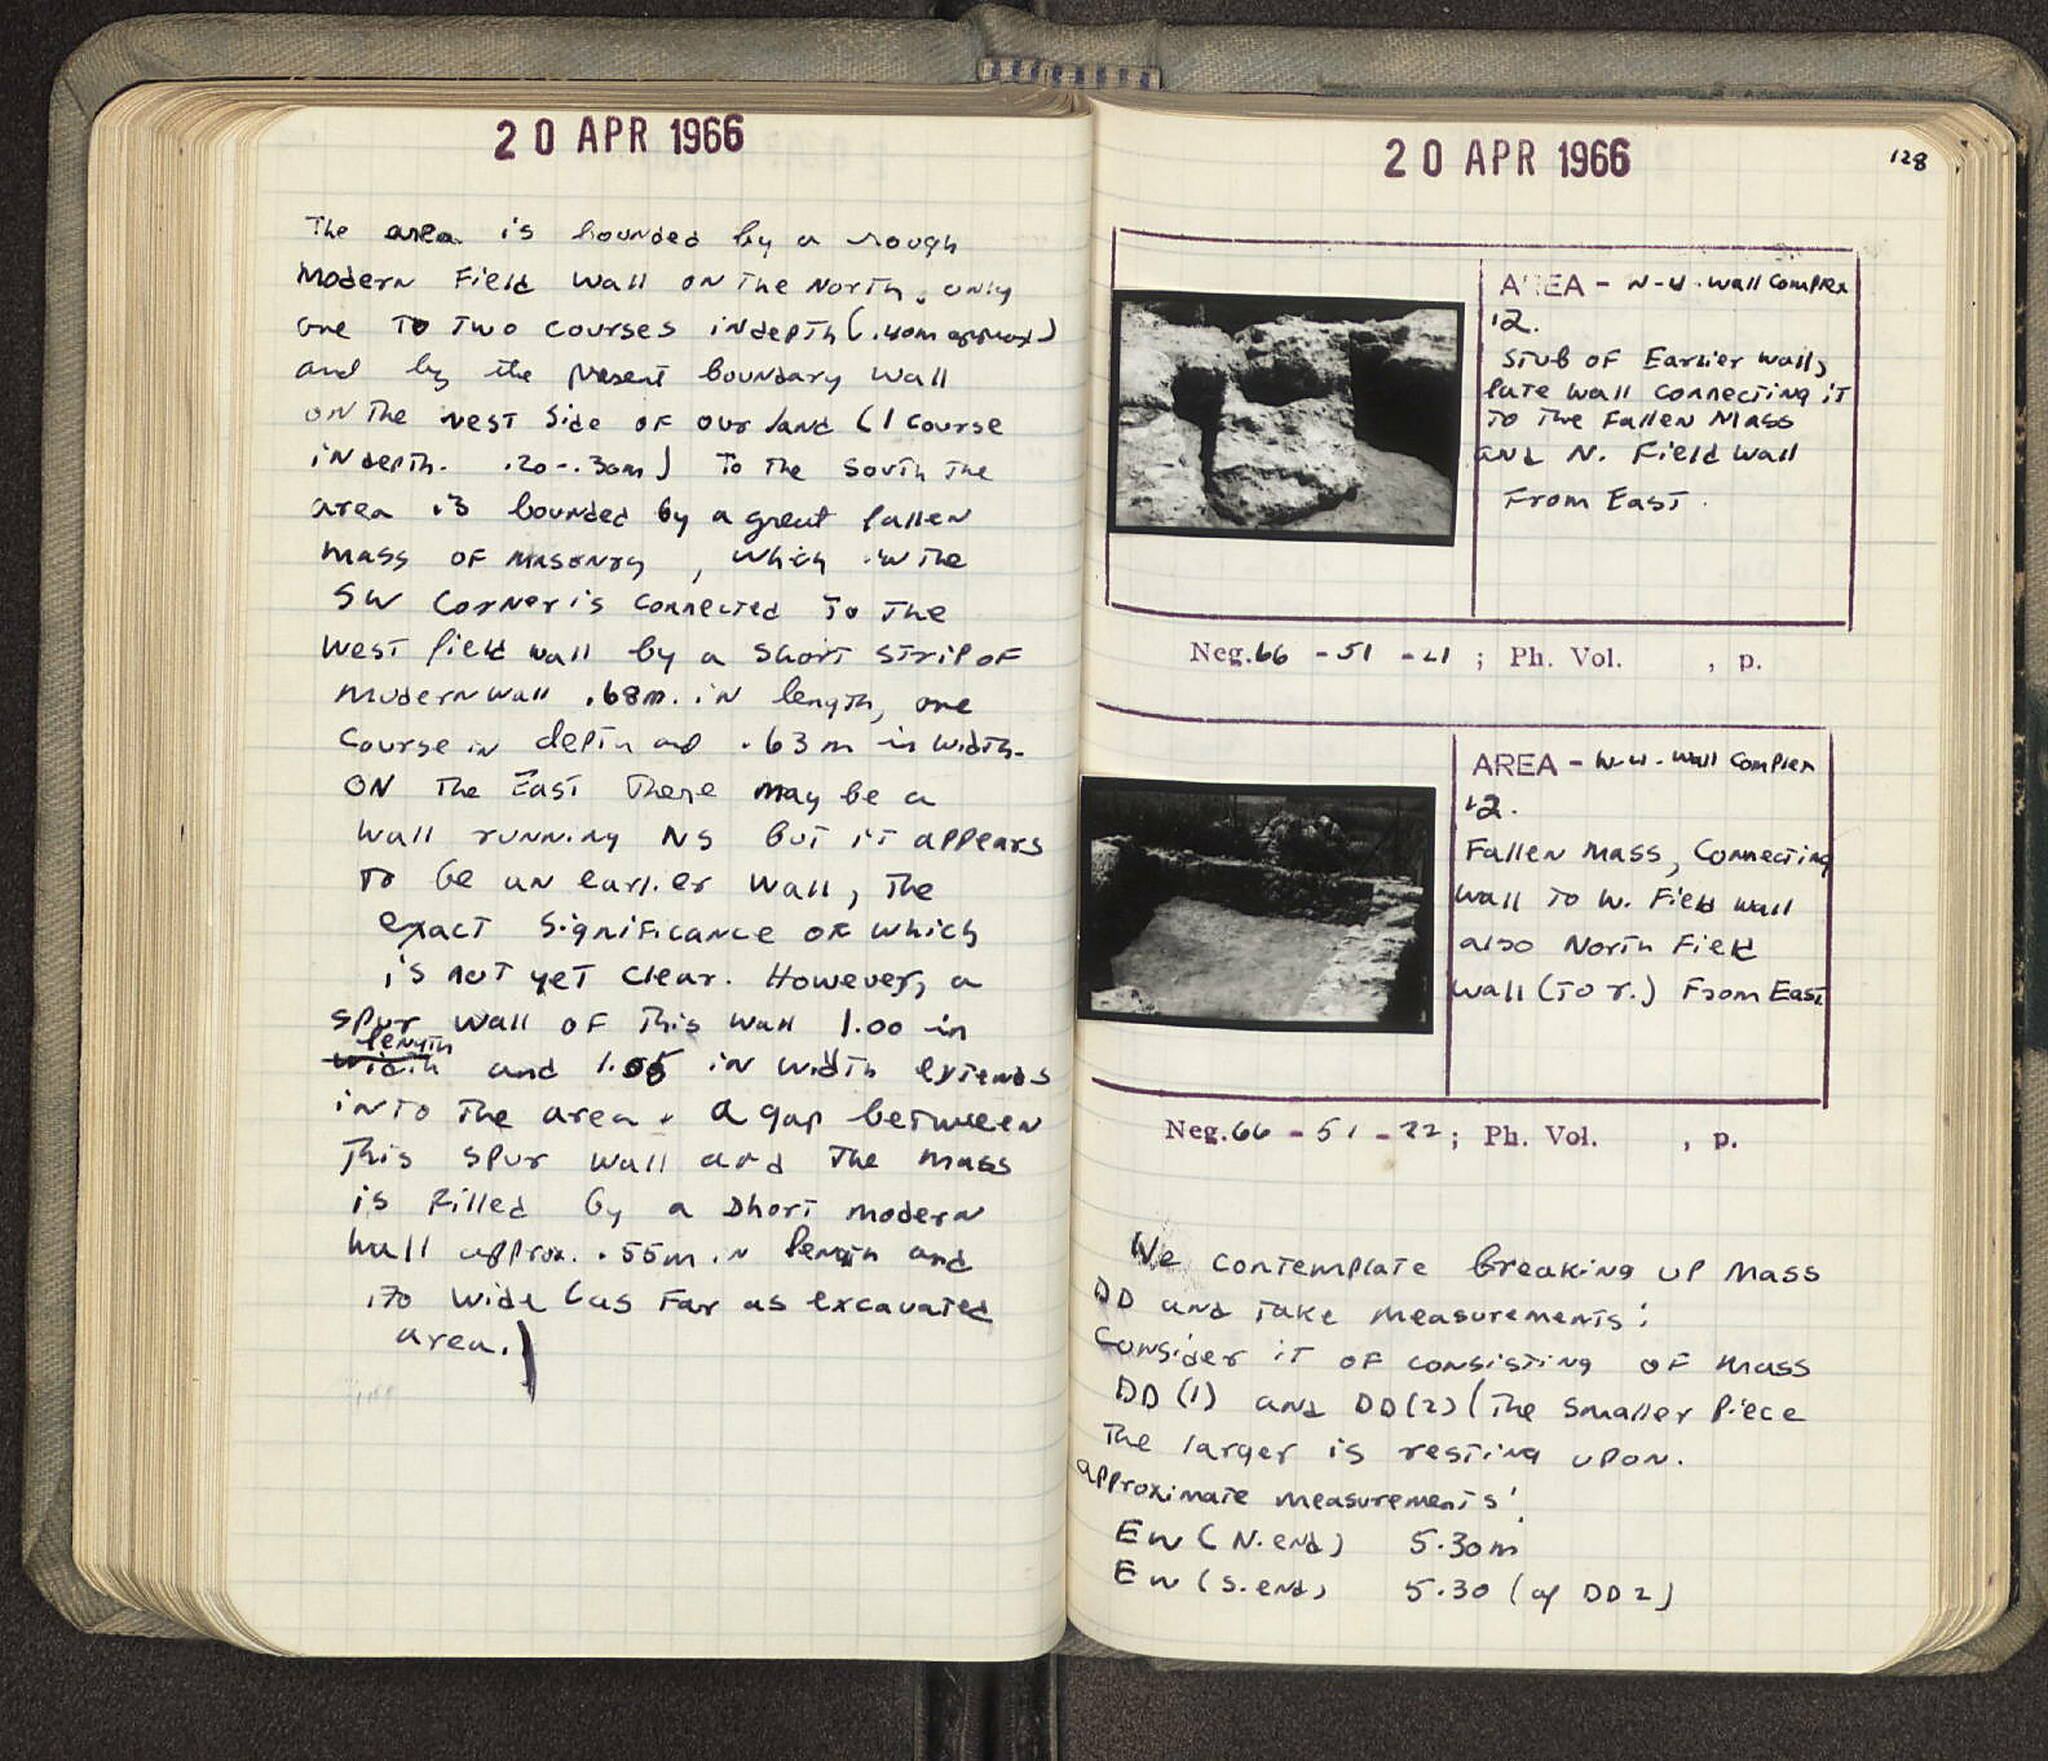 20 APR 1966
The area is bounded by a rough
modern Field Wall on the North. only
one to two courses in depth (.40m approx)
and by the present boundary wall
on the West side of our land (1 course
in depth. .20-.30m) to the South the
area is bounded by a great fallen
mass of masonry, which in the
SW corner is connected to the
West field wall by a short strip of
modern wall .68m. in length, one
course in depth and .63m in width.
On the East there may be a
wall running NS but it appears
to be an earlier wall, the
exact significance of which
is not yet clear. However, a
spur wall of this wall 1.00 in
length
width and 1.05 in width extends
into the area. A gap between
this spur wall and the mass
is filled by a short modern
wall approx. .55m in length and
.70 wide (as far as excavated
area.)
20 APR 1966
128
AREA - N-W. Wall Complex
12.
Stub of Earlier wall,
late wall connecting it
to the Fallen Mass
and N. Field wall
From East.
Neg. 66 - 51 - 21 ; Ph. Vol. , p.
AREA - N-W. Wall Complex
12.
Fallen mass, Connecting
wall to W. Field wall
also North Field
wall (to r.) From East
Neg. 66 - 51 - 22 ; Ph. Vol. , p.
We contemplate breaking up Mass
DD and take measurements:
Consider it of consisting of mass
DD (1) and DD (2) (the smaller piece
the larger is resting upon.
approximate measurements:
EW (N. end) 5.30m
EW (S. end) 5.30 (of DD 2)